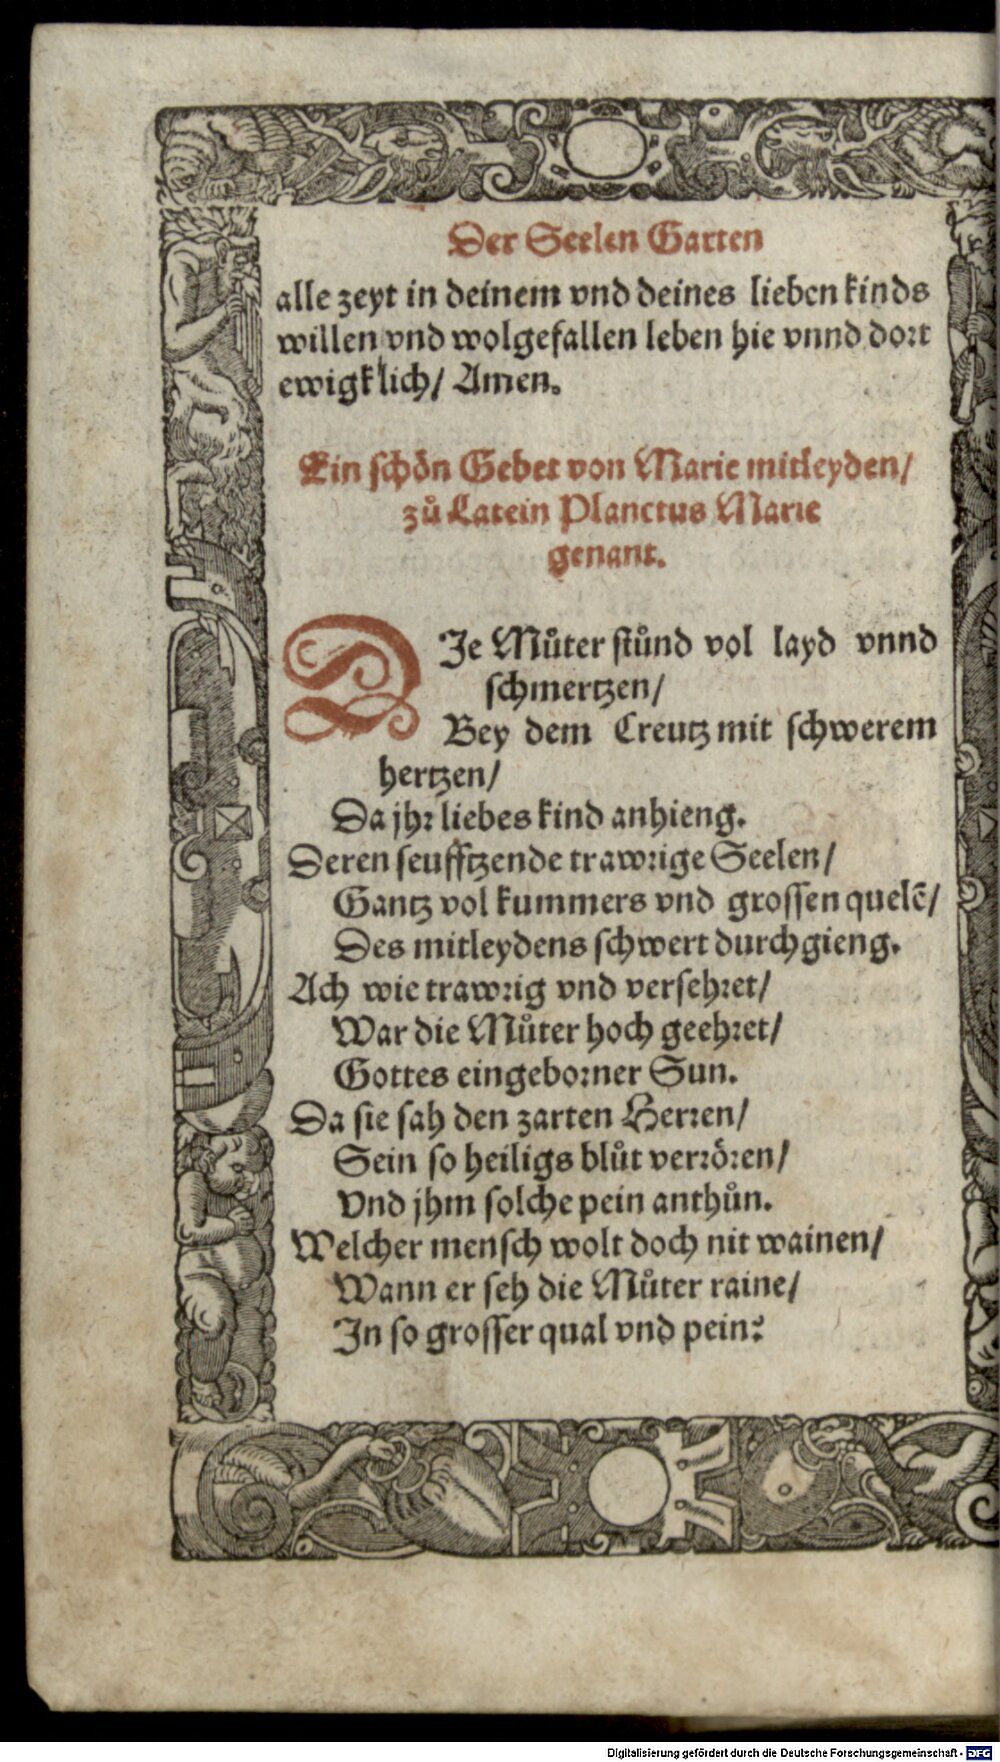 Der Seelen Garten
alle zeyt in deinem vnd deines lieben kinds
willen vnd wolgefallen leben hie vnnd dort
ewigklich/ Amen.
Ein schoͤn Gebet von Marie mitleyden/
zuͦ Latein Planctus Marie
genant.
DIe Muͦter stuͦnd vol layd vnnd
schmertzen/
Bey dem Creutz mit schwerem
hertzen/
Da jhr liebes kind anhieng.
Deren seufftzende trawrige Seelen/
Gantz vol kummers vnd grossen quelē/
Des mitleydens schwert durchgieng.
Ach wie trawrig vnd versehret/
War die Muͦter hoch geehret/
Gottes eingeborner Sun.
Da sie sah den zarten Herren/
Sein so heiligs bluͦt verroͤren/
Vnd jhm solche pein anthuͦn.
Welcher mensch wolt doch nit wainen/
Wann er seh die Muͦter raine/
In so grosser qual vnd pein?
Digitalisierung gefördert durch die Deutsche Forschungsgemeinschaft - DFG